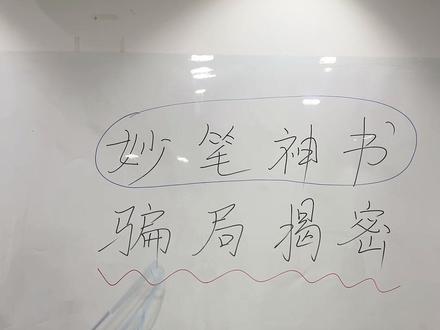 妙笔神书
骗局揭密